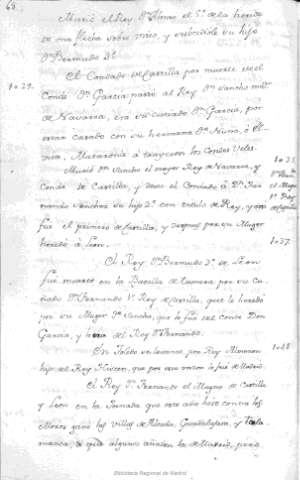 68.
Murió el Rey Dn. Alonso el 5º. de la herida
de una flecha sobre Viseo, y subcedióle su hijo
Dn. Bermudo 3º.
1029.
El Condado de Castilla por muerte del
Conde Dn. Garcia, pasó al Rey Dn. Sancho
de Navarra, era su cuñado Dn. Garcia, por
estar casado con su hermana Dª. Nuña, ó El-
vira. Mataronle á traycion los Condes Velas.
Murió Dn. Sancho el mayor Rey de Navarra, y
Conde de Castilla, y dexó el Condado á Dn. Fer-
nando Sanchez su hijo 2º. con titulo de Rey, y
fue el primero de Castilla, y despues por su Muger
heredó á Leon.
1037.
El Rey Dn. Bermudo 3º. de Leon
fue muerto en la Batalla de por su Cu-
ñado Dn. Fernando 1º. Rey de Castilla, que le heredó
por su Muger Dª. Sancha, que lo fue del Conde Don
Garcia, y hermana del Rey Dn. Bermudo.
En Toledo por Rey Almenon
hijo del Rey Hixen, que por esta razon lo fue de Madrid.
El Rey Dn. Fernando el Magno de Castilla
y Leon en la Jornada que este año hizo contra los
Moros ganó las Villas de Alcalá, Guadalajara y Tala-
manca, á que algunos añaden la de Madrid, pero
Biblioteca Regional de Madrid